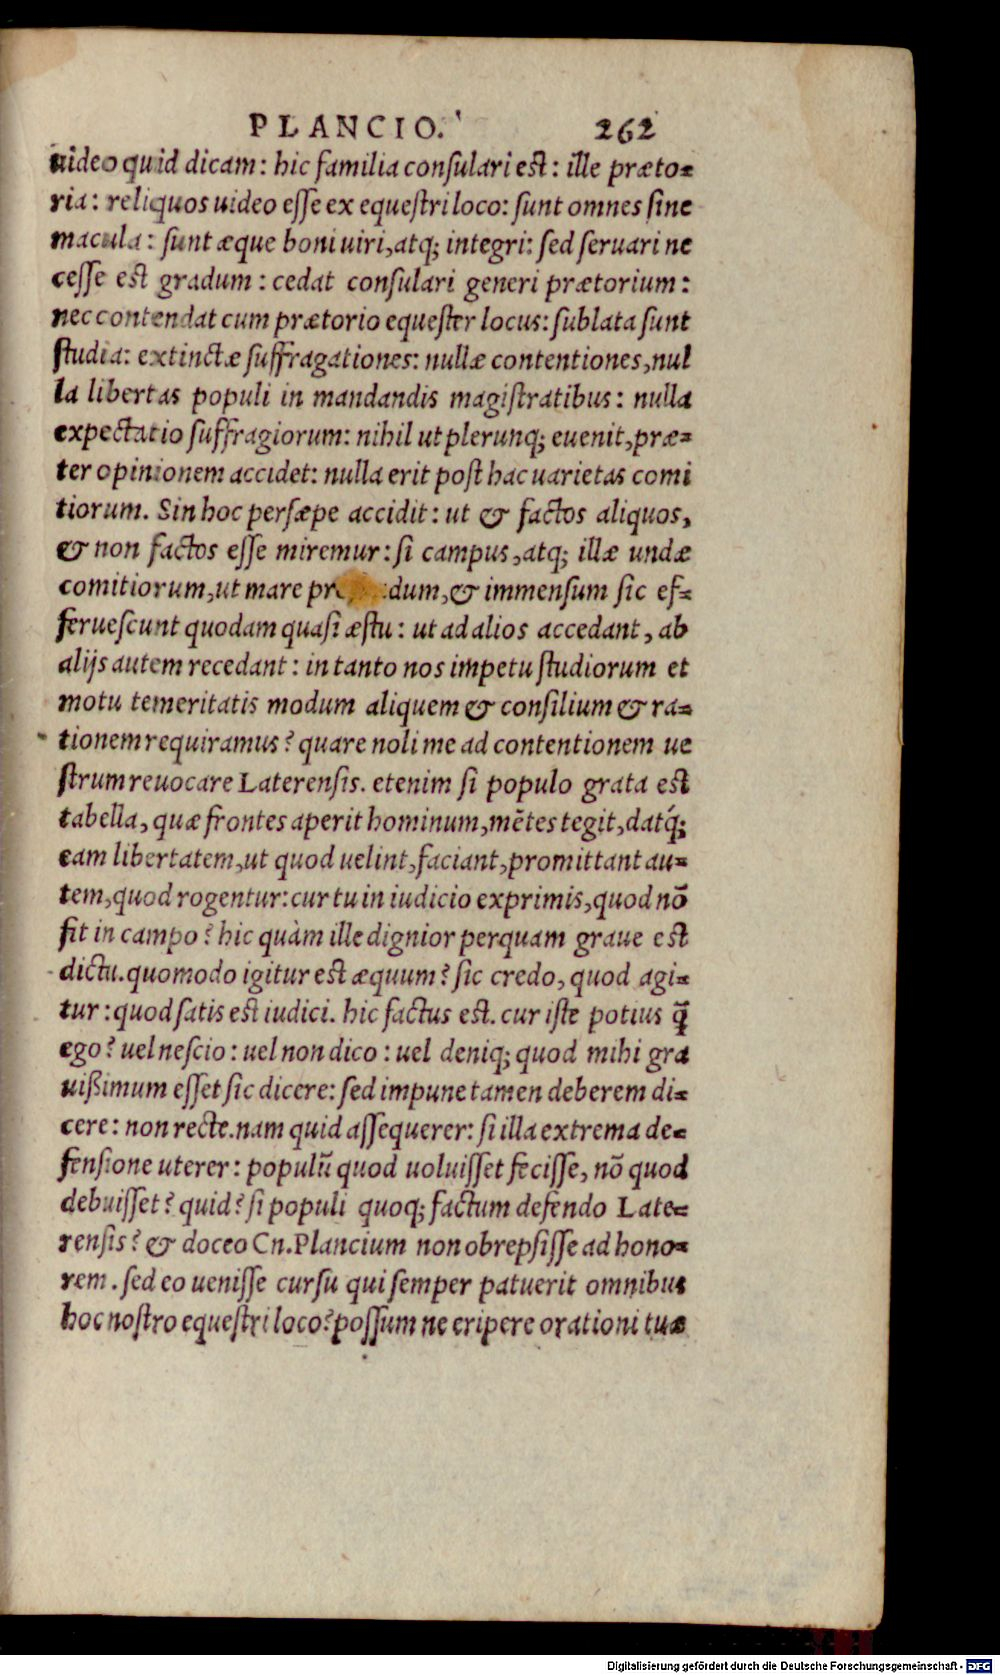 PLANCIO. 262
uideo quid dicam: hic familia consulari est: ille præto-
ria: reliquos uideo esse ex equestri loco: sunt omnes sine
macula: sunt æque boni uiri, atq; integri: sed seruari ne
cesse est gradum: cedat consulari generi prætorium:
nec contendat cum prætorio equester locus: sublata sunt
studia: extinctæ suffragationes: nullæ contentiones, nul
la libertas populi in mandandis magistratibus: nulla
expectatio suffragiorum: nihil ut plerunq; euenit, præ-
ter opinionem accidet: nulla erit post hac uarietas comi
tiorum. Sin hoc persæpe accidit: ut & factos aliquos,
& non factos esse miremur: si campus, atq; illæ undæ
comitiorum, ut mare pr dum, & immensum sic ef-
feruescunt quodam quasi æstu: ut ad alios accedant, ab
alijs autem recedant: in tanto nos impetu studiorum et
motu temeritatis modum aliquem & consilium & ra-
tionem requiramus? quare noli me ad contentionem ue
strum reuocare Laterensis. etenim si populo grata est
tabella, quæ frontes aperit hominum, mētes tegit, datq́;
eam libertatem, ut quod uelint, faciant, promittant au-
tem, quod rogentur: cur tu in iudicio exprimis, quod nō
fit in campo? hic quàm ille dignior perquam graue est
dictu. quomodo igitur est æquum? sic credo, quod agi-
tur: quod satis est iudici. hic factus est. cur iste potius q̄
ego? uel nescio: uel non dico: uel deniq; quod mihi gra
uißimum esset sic dicere: sed impune tamen deberem di-
cere: non recte. nam quid assequerer: si illa extrema de-
fensione uterer: populū quod uoluisset fecisse, nō quod
debuisset? quid? si populi quoq; factum defendo Late-
rensis? & doceo Cn. Plancium non obrepsisse ad hono-
rem. sed eo uenisse cursu qui semper patuerit omnibus
hoc nostro equestri loco? possum ne eripere orationi tuæ
Digitalisierung gefördert durch die Deutsche Forschungsgemeinschaft - DFG